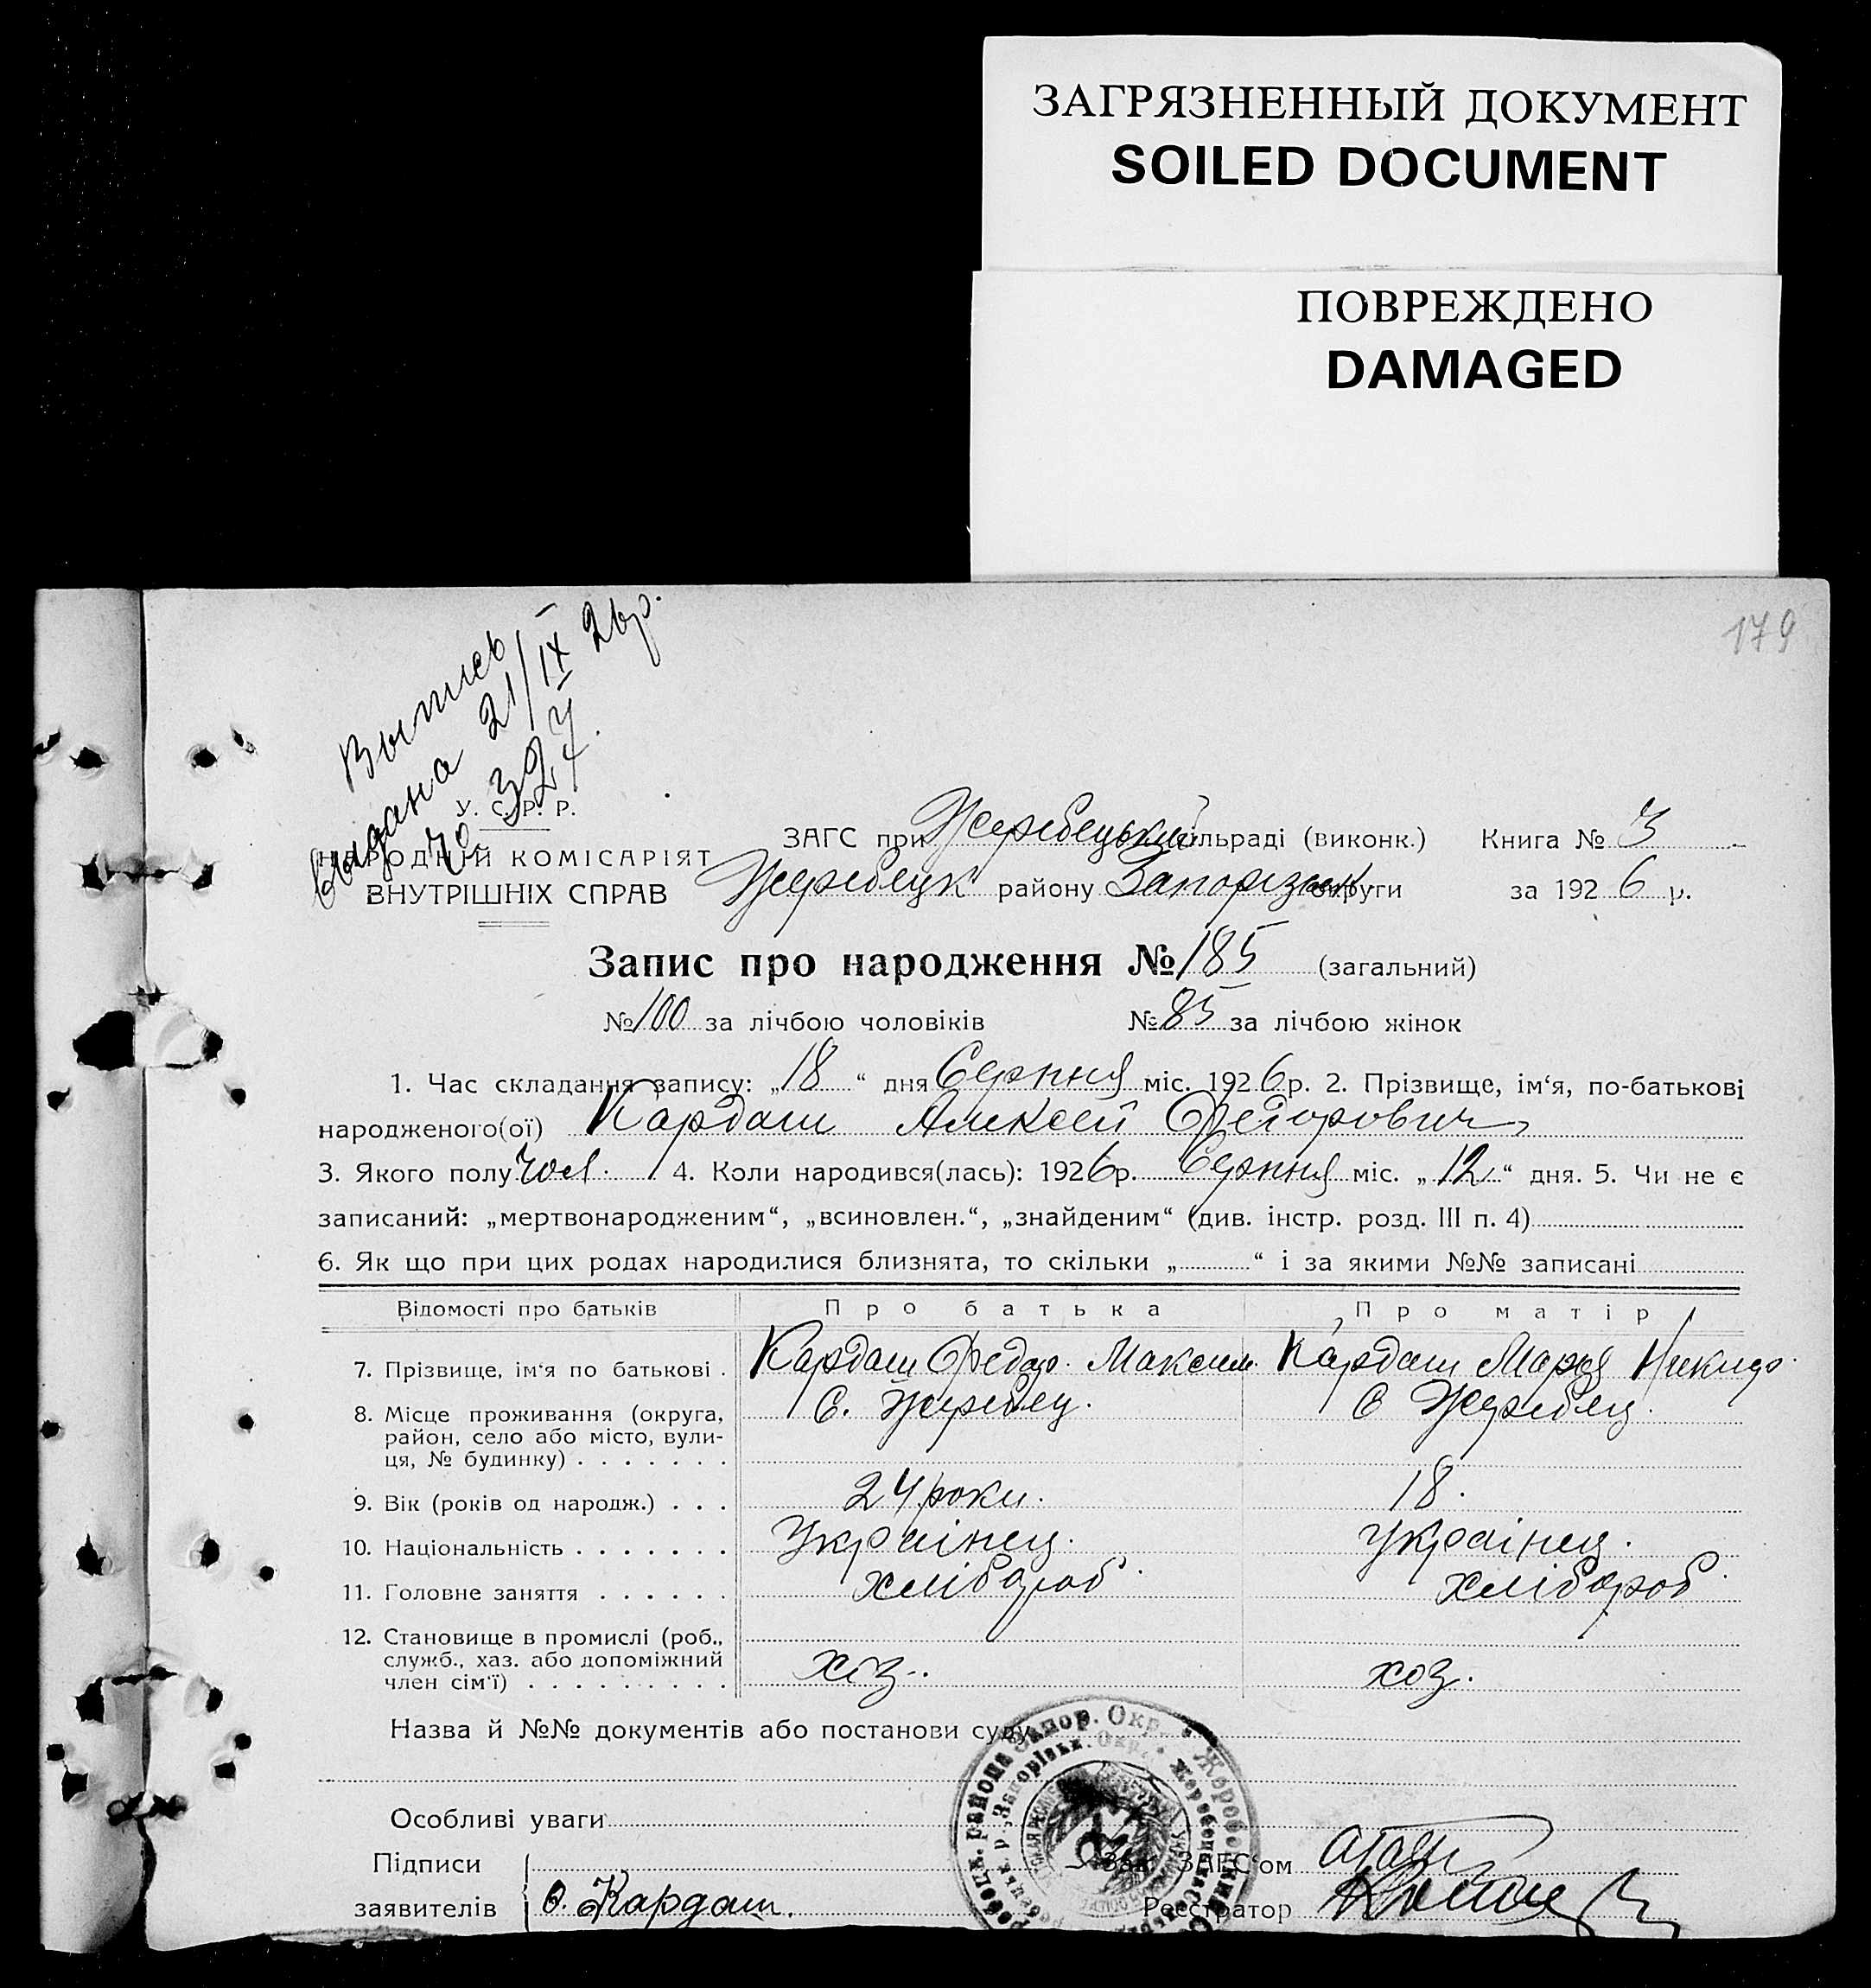 ЗАГРЯЗНЕННЫЙ ДОКУМЕНТ
SOILED DOCUMENT
ПОВРЕЖДЕНО
DAMAGED
179
Выпись
выдана 21/IX 26р.
№ 327
У. С. Р. Р.
НАРОДНІЙ КОМІСАРІЯТ
ВНУТРІШНІХ СПРАВ
ЗАГС при Жеребецький сільраді (виконк.) Книга № 3
Жеребецьк району Запорізьк округи за 1926 р.
Запис про народження № 185 (загальний)
№ 100 за лічбою чоловіків № 85 за лічбою жінок
1. Час складання запису: „18“ дня Серпня міс. 1926 р. 2. Прізвище, ім‘я, по-батькові
народженого(ої) Кардаш Алексей Федорович
3. Якого полу чол. 4. Коли народився(лась): 1926 р. Серпня міс. „12“ дня. 5. Чи не є
записаний: „мертвонародженим“, „всиновлен.“, „знайденим“ (див. інстр. розд. III п. 4)
6. Як що при цих родах народилися близнята, то скільки „ “ і за якими №№ записані
Відомості про батьків Про батька Про матір
7. Прізвище, ім‘я по батькові . Кардаш Федор. Максим. Кардаш Марья Никидр.
8. Місце проживання (округа, С. Жеребец. С Жеребец.
район, село або місто, вули-
ця, № будинку) . . . . . . .
9. Вік (років од народж.) . . . 24 роки. 18.
10. Національність . . . . . . . Українец. Українец.
11. Головне заняття . . . . . . хлібороб. хлібороб.
12. Становище в промислі (роб.,
служб., хаз. або допоміжний хоз. хоз.
член сім‘ї) . . . . . . . . .
Назва й №№ документів або постанови суду
Особливі уваги
Підписи Зав. ЗАГС‘ом
заявителів Ф. Кардаш. Реєстратор